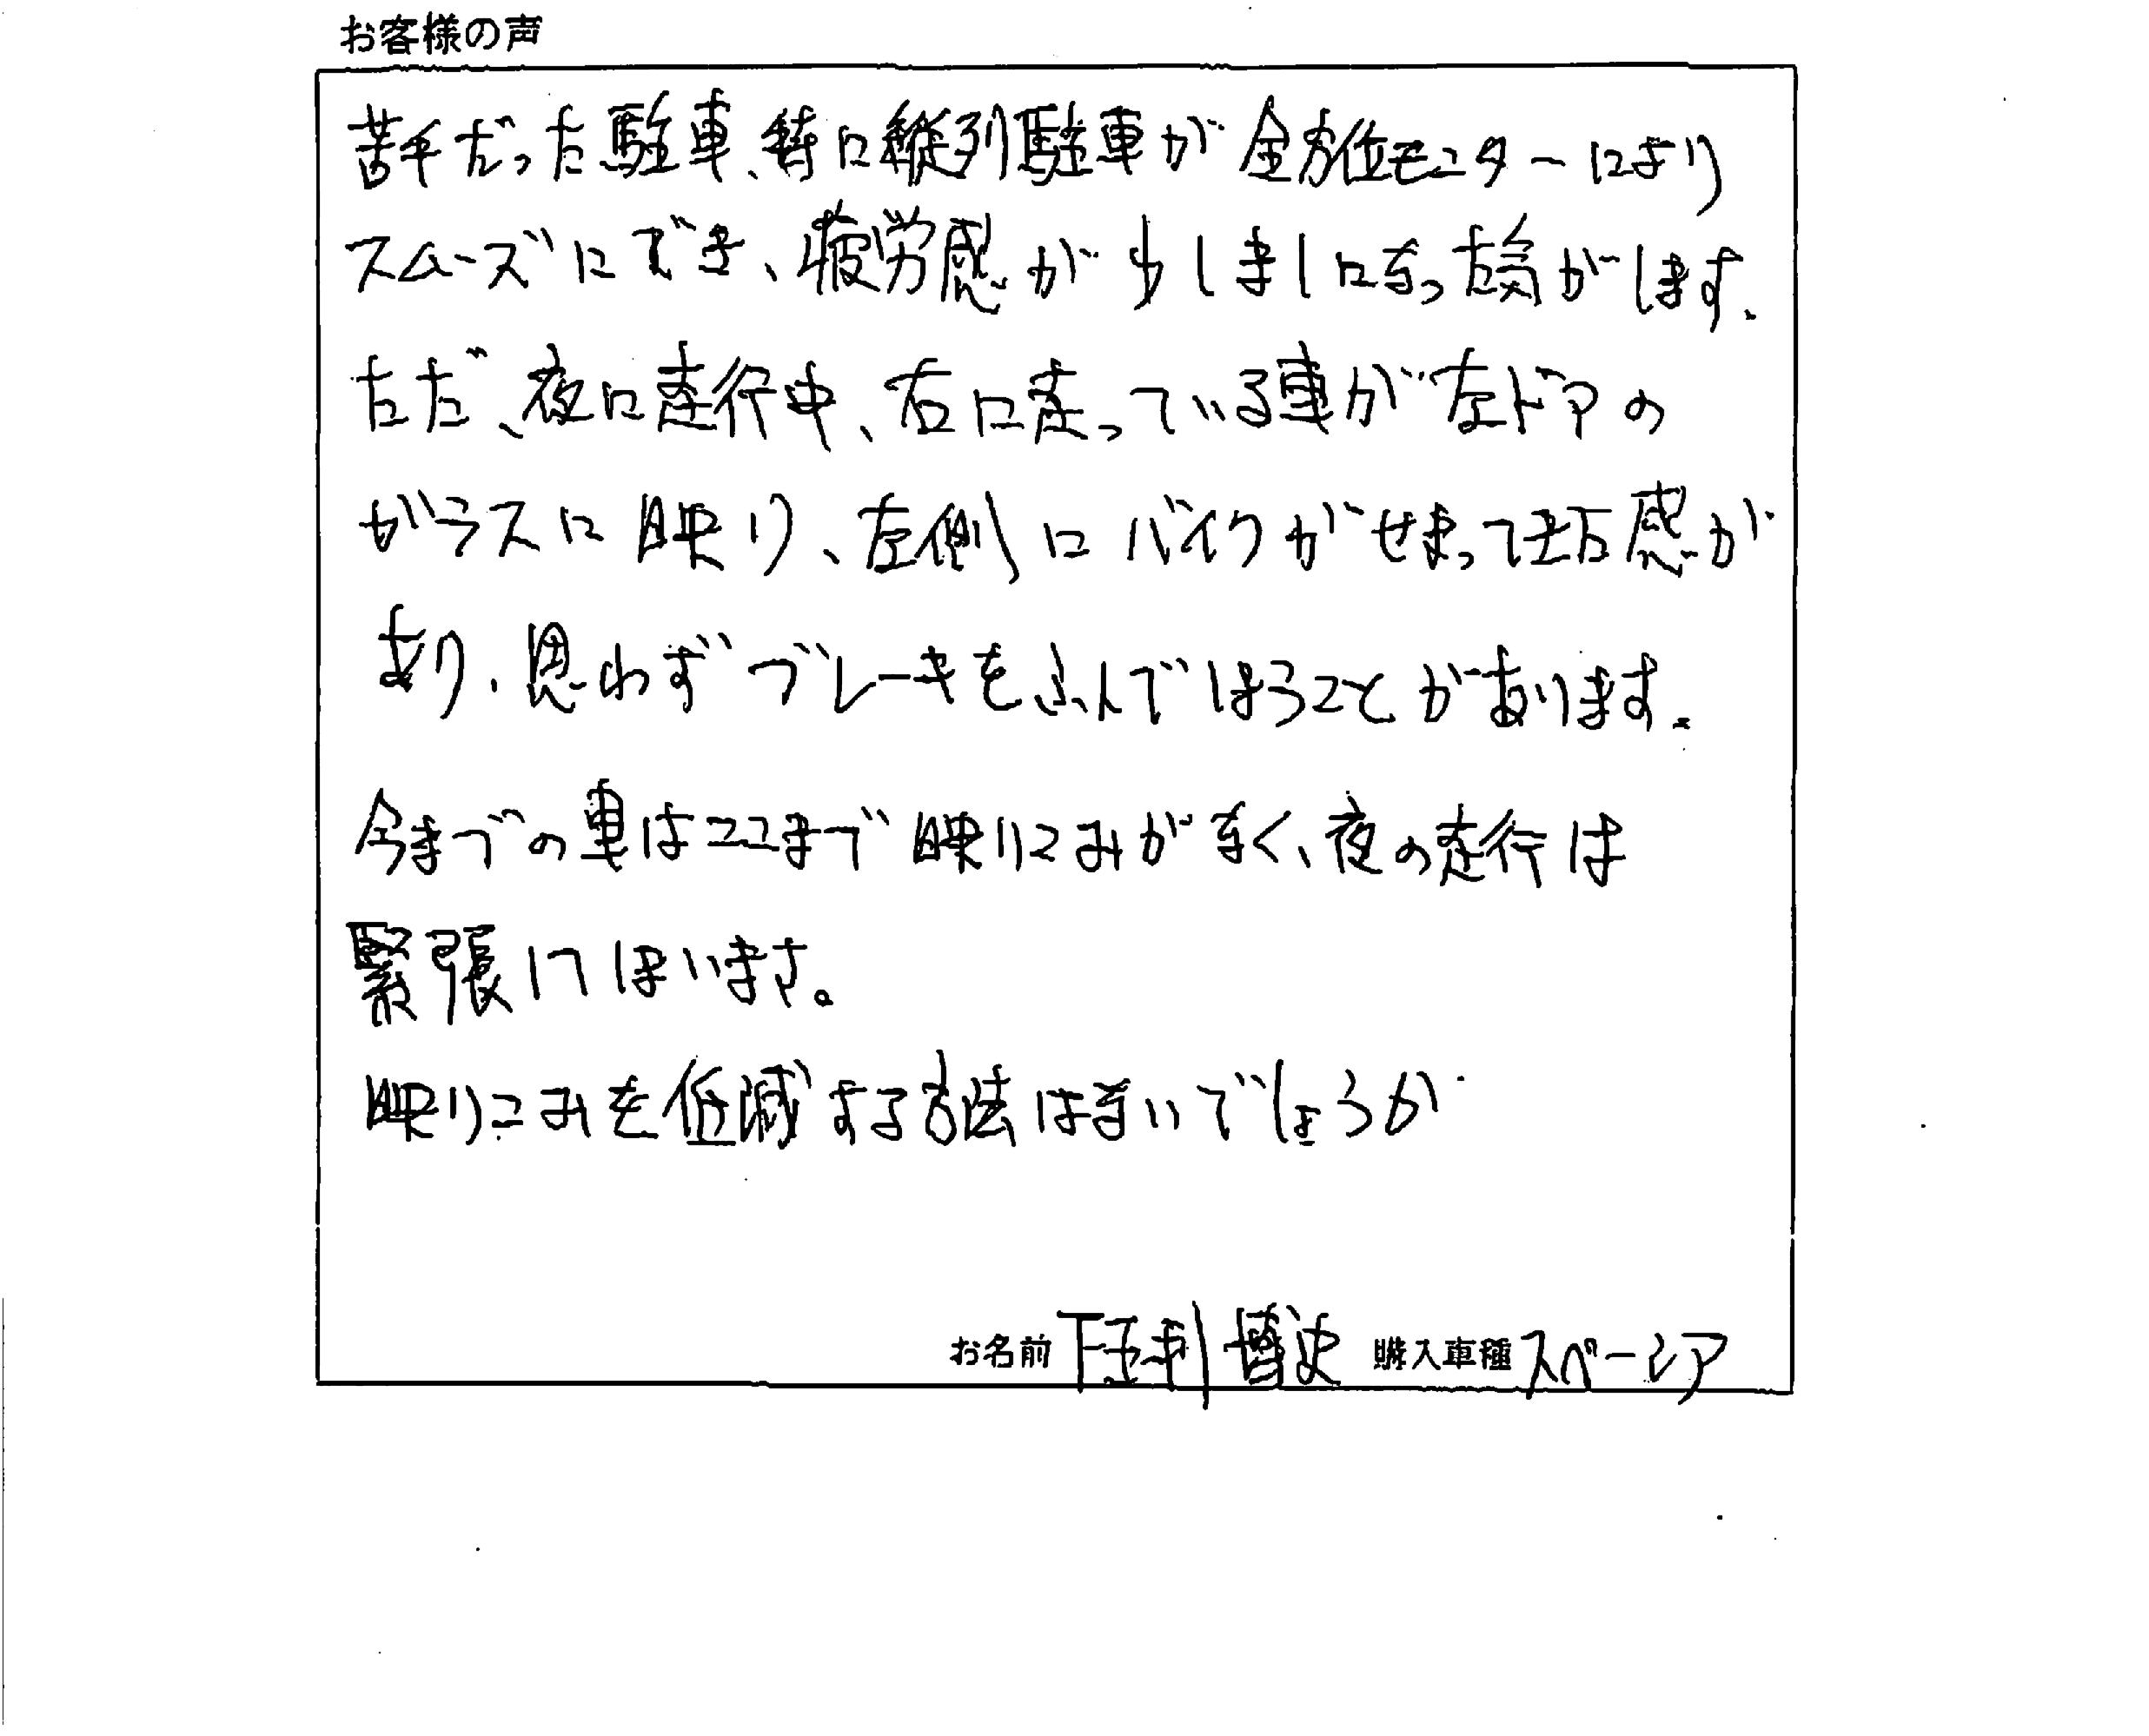 お客様の声
苦手だった駐車、特に縦列駐車が全方位モニターにより
スムーズにでき、疲労感が少しましになった気がします、
ただ、夜に走行中、右に走っている車が左ドアの
ガラスに映り、左側にバイクがせまってきた感が
あり、思わずブレーキをふんでしまうことがあります。
今までの車はここまで映りこみがなく、夜の走行は
緊張してしまいます。
映りこみを低減する方法はないでしょうか
お名前 下玉利 博史 購入車種 スペーシア